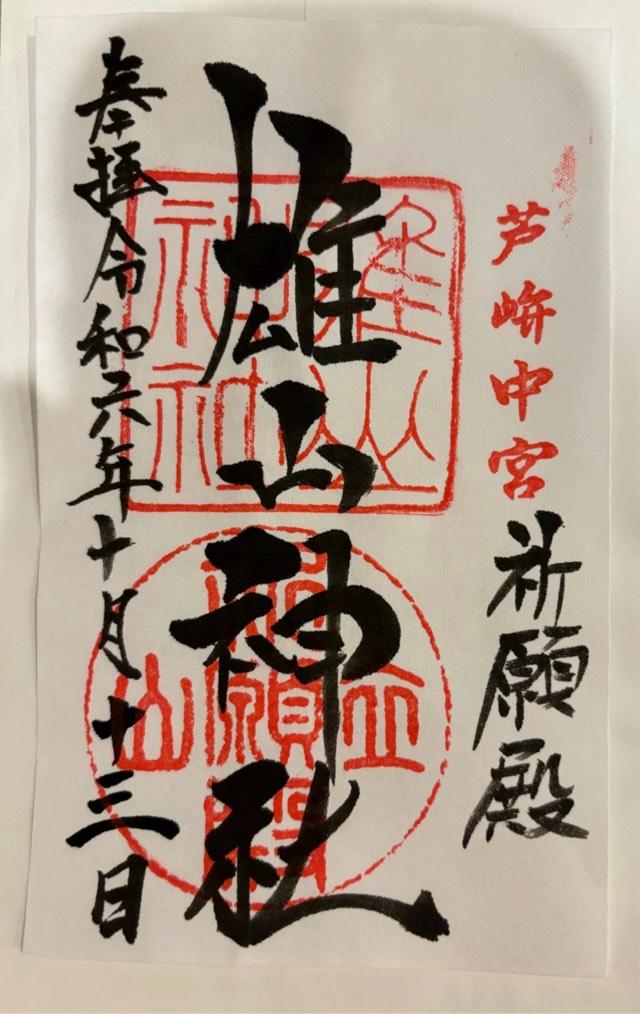 芦峅中宮祈願殿
雄山神社
雄山神社
立山
祈願殿
奉拝令和六年十月十三日